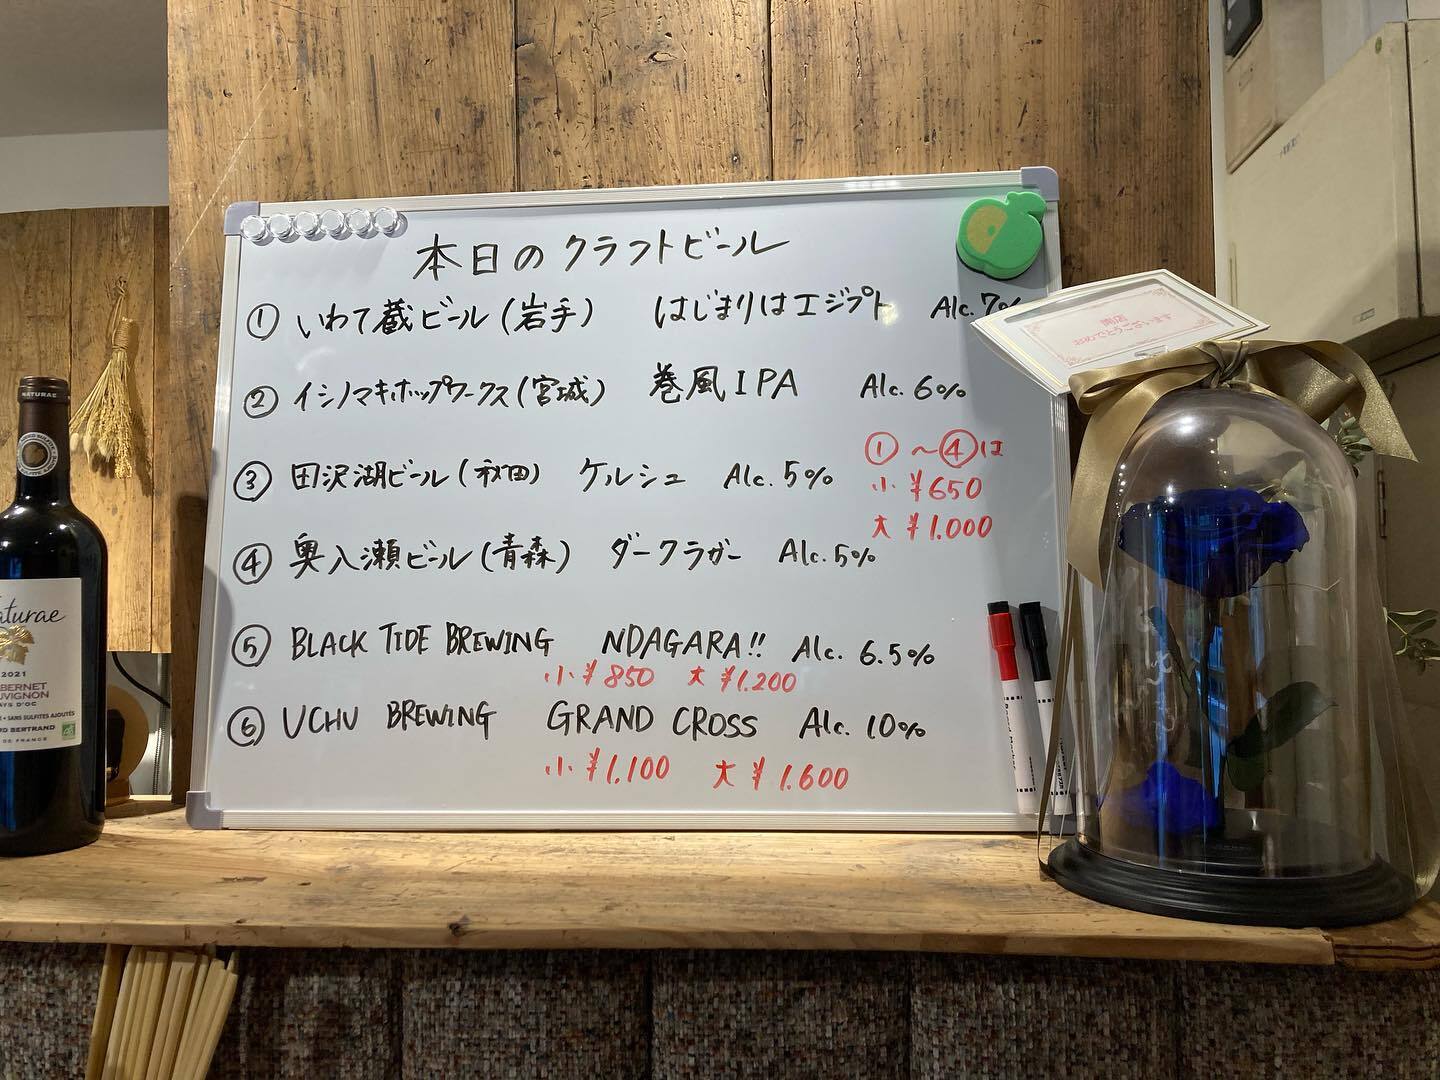 本日のクラフトビール
① いわて蔵ビール(岩手) はじまりはエジプト Alc. 7%
② イシノマキホップワークス(宮城) 巻風IPA Alc. 6%
①〜④は
小 ¥650
大 ¥1.000
③ 田沢湖ビール(秋田) ケルシュ Alc. 5%
④ 奥入瀬ビール(青森) ダークラガー Alc. 5%
⑤ BLACK TIDE BREWING NDAGARA!! Alc. 6.5%
小 ¥850 大 ¥1.200
⑥ UCHU BREWING GRAND CROSS Alc. 10%
小 ¥1.100 大 ¥1.600
開店
おめでとうございます
NATURAE
aturae
2021
CABERNET
SAUVIGNON
PAYS D'OC
SANS SULFITES AJOUTÉS
RD BERTRAND
DE FRANCE